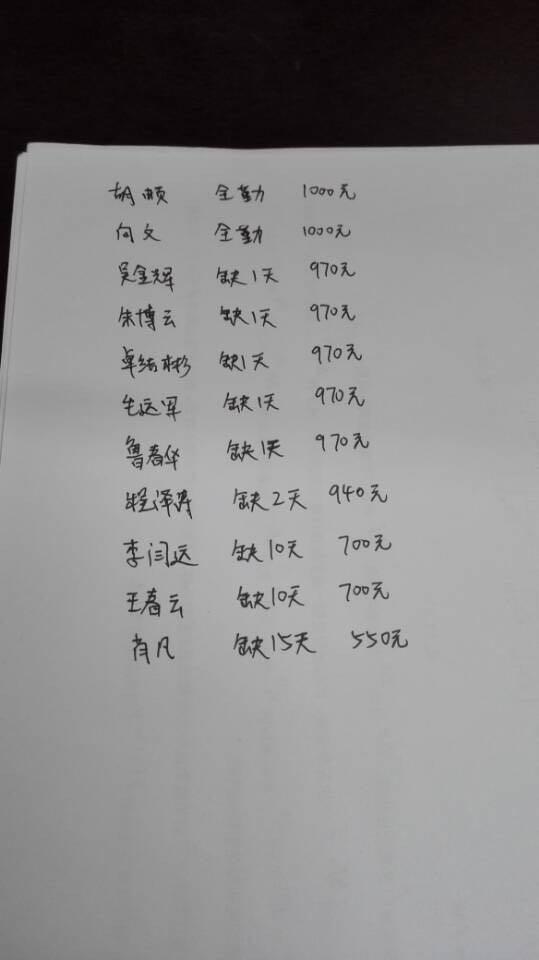 胡顺 全勤 1000元
向文 全勤 1000元
吴金辉 缺1天 970元
朱博云 缺1天 970元
卓结彬 缺1天 970元
生远军 缺1天 970元
鲁春华 缺1天 970元
程泽涛 缺2天 940元
李闫远 缺10天 700元
王春云 缺10天 700元
肖凡 缺15天 550元